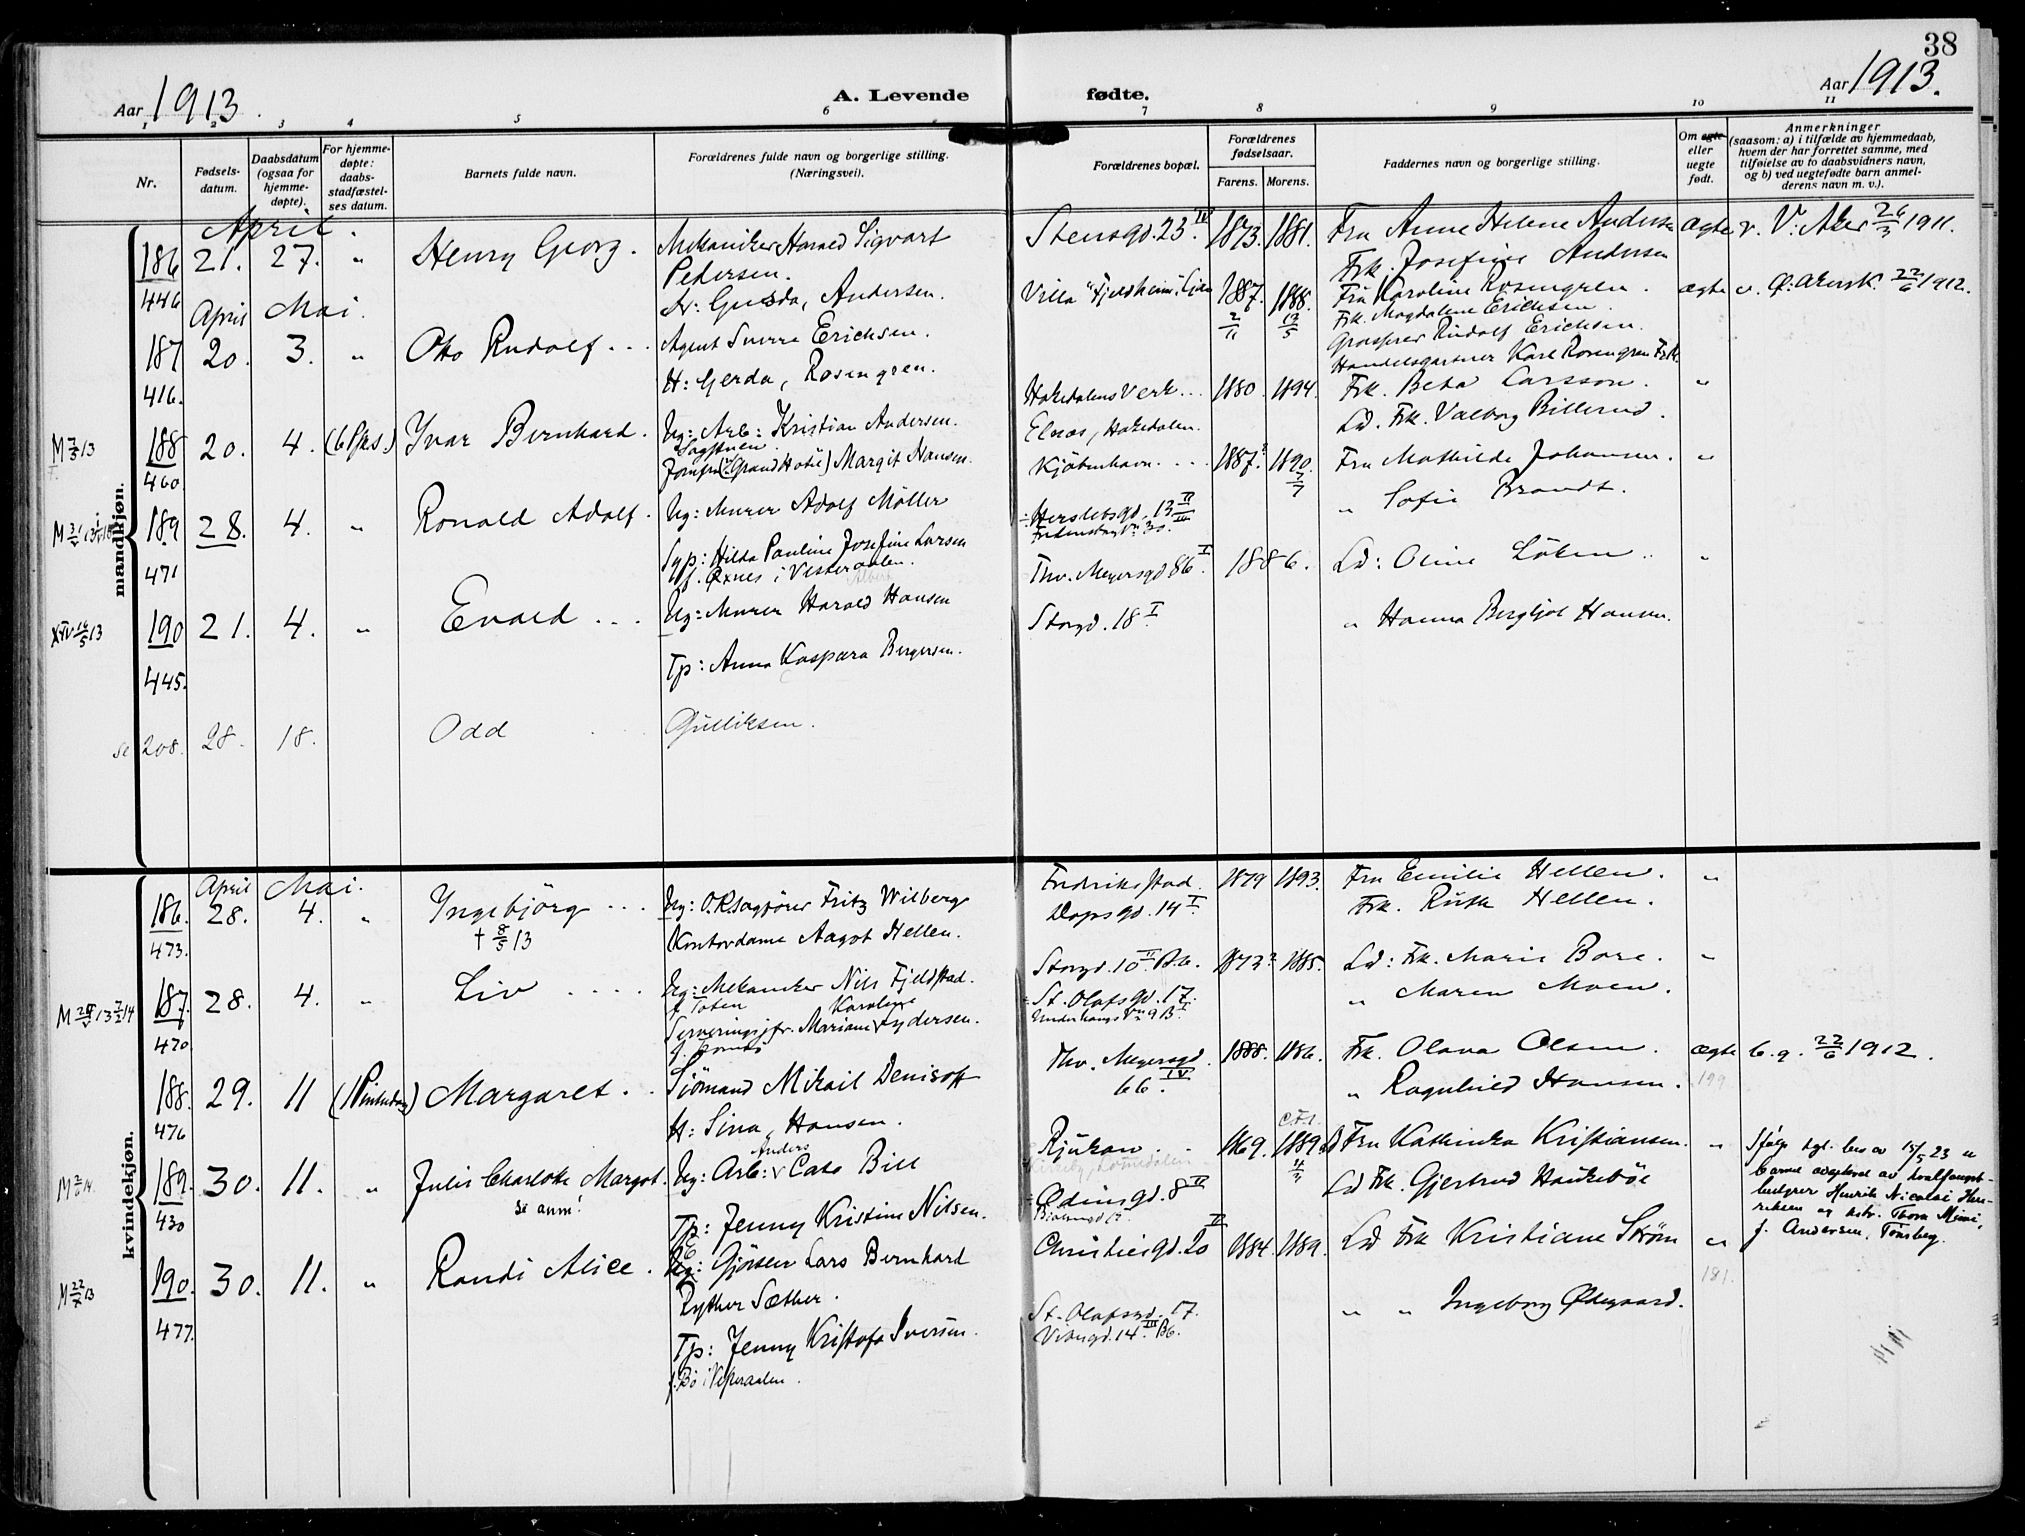 38
Aar 1913.
A. Levende
fødte.
Aar 1913.
1 2 3 4 5 6 7 8 9 10 11
Nr.
Fødsels-
datum.
Daabsdatum
(ogsaa for
hjemme-
døpte).
For hjemme-
døpte:
daabs-
stadfæstel-
ses datum.
Barnets fulde navn.
Forældrenes fulde navn og borgerlige stilling.
(Næringsvei).
Forældrenes bopæl.
Forældrenes
fødselsaar.
Farens. Morens.
Faddernes navn og borgerlige stilling.
Om egte
eller
uegte
født.
Anmerkninger
(saasom: a) i tilfælde av hjemmedaab,
hvem der har forrettet samme, med
tilføielse av to daabsvidners navn,
og b) ved uegtefødte barn anmel-
derens navn m. v.).
mandkjøn.
April.
186 21. 27. " Henry Georg. Mekaniker Harald Sigvart Stensgd. 23 IV 1873. 1881. Fru Anne Helene Andersen ægte v. V: Aker 26/3 1911.
446
Pedersen.
H: Gusda, Andersen.
Frk. Josefine Andersen
April Mai.
187 20. 3. " Otto Rudolf . . Agent Sverre Erichsen. Villa "Fjeldheim", 1887. 2/11 1888. 13/5 Fru Karoline Rosengren. ægte v. Ø. Akersk. 22/6 1912.
416.
H: Gerda, Rosengren.
Frk. Magdalene Erichsen.
Grosserer Rudolf Erichsen.
Handelsgartner Karl Rosengren
M 7/3 13 188 20. 4. (6 Pks.) Ivar Bernhard. Ug: Arb: Kristian Andersen. Hakedalens Verk . . 1880. 1894. Frk. Beda Carsson. "
460
Jomfru (Grand Hotel) Margit Hansen.
Elnæs, Hakedalen.
Ld. Frk. Valborg Billerud.
189 28. 4. " Ronald Adolf. Ug: Murer Adolf Möller Kjöbenhavn. . . . 1887? 1890. 7/7 Fru Mathilde Johansen. "
471
Syp: Hilda Pauline Josefine Larsen
f. Øxnes i Vesteraalen.
Herslebsgd. 13 II
" Sofie Brandt.
XIV 16/5 13 190 21. 4. " Evald . . . Ug: Murer Harald Hansen Thv. Meyersgd 86 I 1886. Ld: Oline Löken. "
Albert
445.
Tp: Anna Kaspara Bergersen.
Storgd. 18 I
" Hanna Bergljot Hansen.
se 208. 28. 18. Odd Gulliksen.
kvindekjøn.
April Mai.
186. 28. 4. " Ingebjörg . . . Ug: O.R. Sagförer Fritz Wilberg Fredriksstad. 1879 1893. Fru Emilie Hellen. "
473.
† 8/5 13
Kontordame Aagot Hellen.
Dopsgd. 14 I
Frk. Ruth Hellen.
187. 28. 4. " Liv . . . . Ug: Mekaniker Nils Fjeldstad. Storgd. 10 II B.b. 1873? 1885. Ld: Frk. Marie Bore. "
470.
f. Toten
Karoline
Serveringsjfr. Mariane Lydersen.
St. Olafsgd. 17.
Underhaugsvn 9 B I
" Maren Moen.
188. 29. 11 (1 Pinsedag) Margaret. . Sjömand Mikail Denisoff Thv. Meyersgd. 66 IV. 1888. 1886. Frk. Olava Olsen. ægte b. g. 22/6 1912.
476
H: Sina, Hansen.
" Ragnhild Hansen. 199
189. 30. 11. " Julie Charlotte Margot. Ug: Arb: Anders Cato Bill Rjukan . . 1869. 1889. 4/3 Fru Kathinka Kristiansen. "
430
Se anm!
Tp: Jenny Kristine Nilsen.
Odinsgd. 8 II
Ld Frk. Gjertrud Haukebøe
Ifølge kgl. bev av 15/5 23 er
barnet adoptert av hvalfangst-
bestyrer Henrik Nicolai Hen-
riksen og hstr. Thora Mimi,
f. Andersen, Tönsberg.
M 22/X 13 190. 30. 11. " Randi Alice. Ug: Gjörtler Lars Bernhard Christiesgd. 20 II 1884. 1889. Ld Frk Kristiane Ström "
477.
Rytter Sæther.
Tp: Jenny Kristofa Iversen.
f. Bö i Vesteraalen.
St. Olafsgd. 17.
Vibesgd. 14 III B b.
" " Ingeborg Ødegaard.
181.